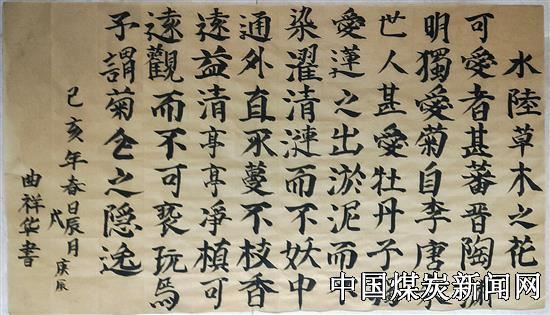 水陸草木之花
可愛者甚蕃晋陶淵
明獨愛菊自李唐來
世人甚愛牡丹予獨
愛蓮之出淤泥而不
染濯清漣而不妖中
通外直不蔓不枝香
遠益清亭亭凈植可
遠觀而不可褻玩焉
予謂菊花之隐逸
己亥年春日辰月庚辰
戊
曲祥华書
中国煤炭新闻网